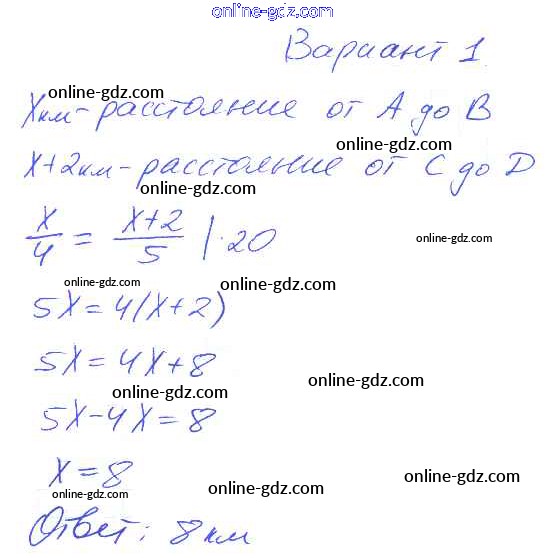 online-gdz.com
Вариант 1
online-gdz.com
online-gdz.com
Xкм - расстояние от А до В
online-gdz.com
X+2км - расстояние от С до D
online-gdz.com
x/4 = (x+2)/5 | · 20
online-gdz.com
online-gdz.com
online-gdz.com
5X = 4(X+2)
online-gdz.com
5X = 4X+8
online-gdz.com
online-gdz.com
5X-4X=8
X=8
online-gdz.com
online-gdz.com
online-gdz.com
Ответ: 8 км